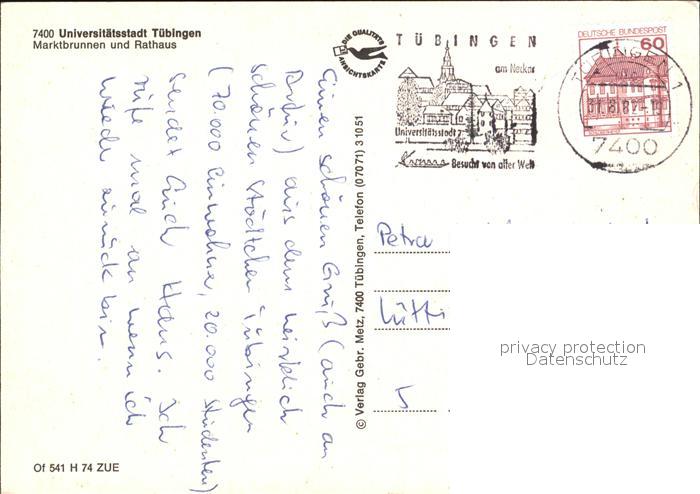 7400 Universitätsstadt Tübingen
Marktbrunnen und Rathaus
DIE QUALITÄTS
ANSICHTSKARTE
TÜBINGEN
am Neckar
Universitätsstadt
Besucht von aller Welt
DEUTSCHE BUNDESPOST
60
TÜBINGEN 1
7400
Einen schönen Gruß (auch an
) aus dem
schönen Städtchen Tübingen
(70.000 Einwohner, 20.000 Studenten)
sendet Euch Hans. Ich
rufe mal an wenn ich
wieder zurück bin.
© Verlag Gebr. Metz, 7400 Tübingen, Telefon (07071) 31051
Petra
privacy protection
Datenschutz
Of 541 H 74 ZUE